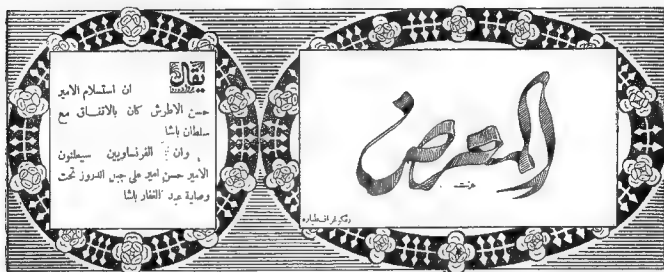 المعرض
يقال
ان استسلام الامير
حسن الاطرش كان بالاتفاق مع
سلطان باشا
وان الفرنساويين سيعلنون
الامير حسن امير على جبل الدروز تحت
وصاية عبد الغفار باشا